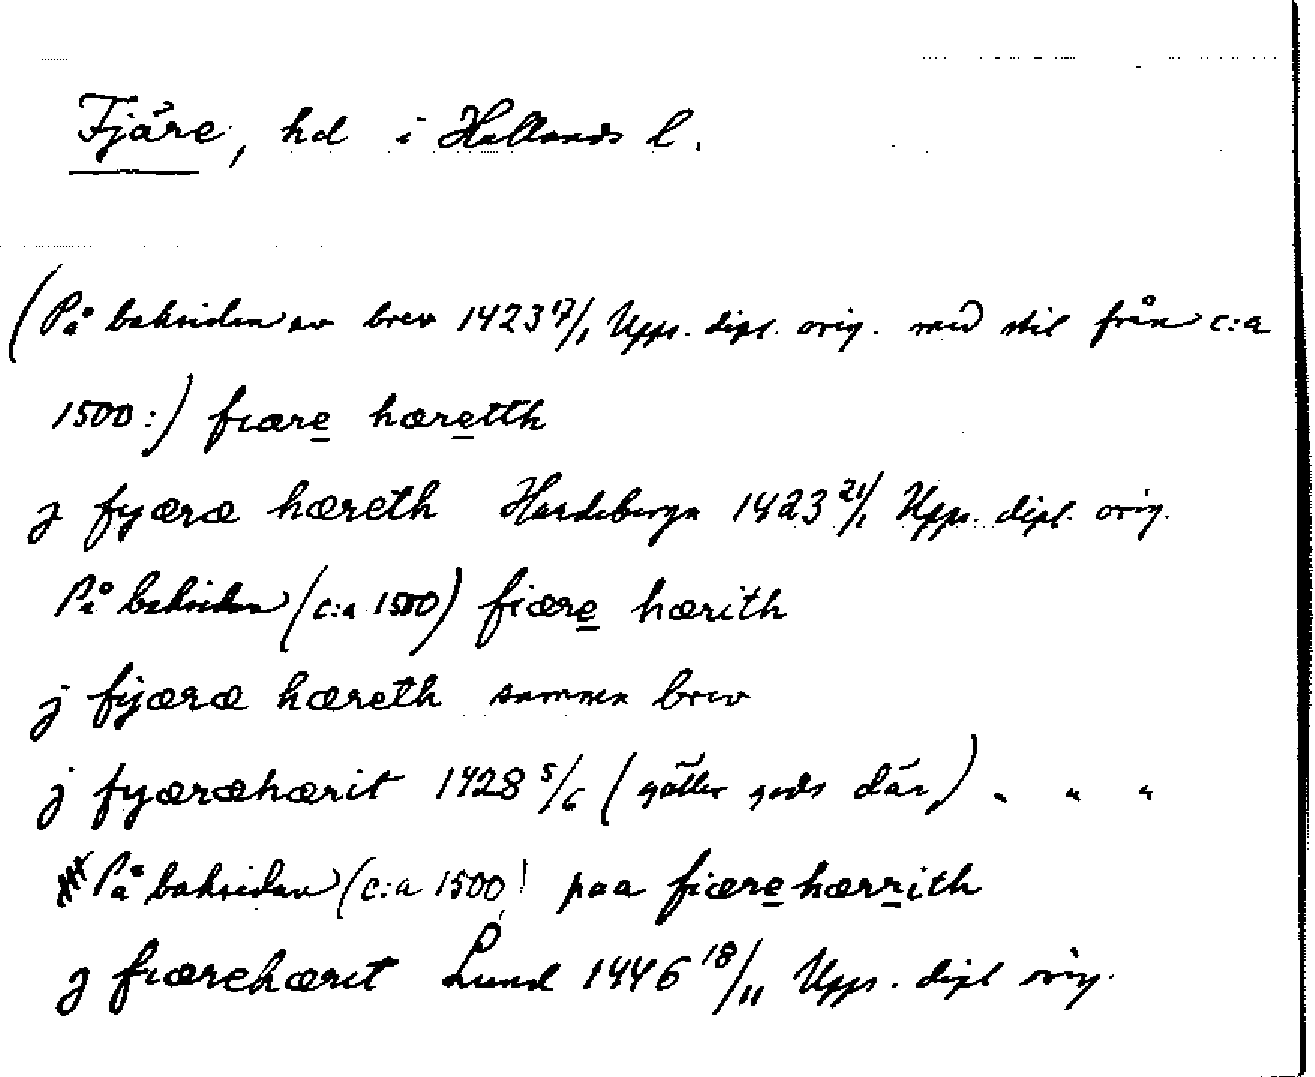 Fjäre, hd i Hallands l.
(På baksidan av brev 1423 17/1 Upps. dipl. orig. med stil från c:a
1500:) fiære hæretth
j fyæræ hæreth Hardeberga 1423 21/1 Upps. dipl. orig.
På baksidan (c:a 1500) fiære hærith
j fijæræ hæreth samma brev
j fyæræhærit 1428 5/6 (gäller gods där) " " "
På baksidan (c:a 1500! paa fiære hærrith
j fiærehæret Lund 1446 18/11 Upps. dipl orig.